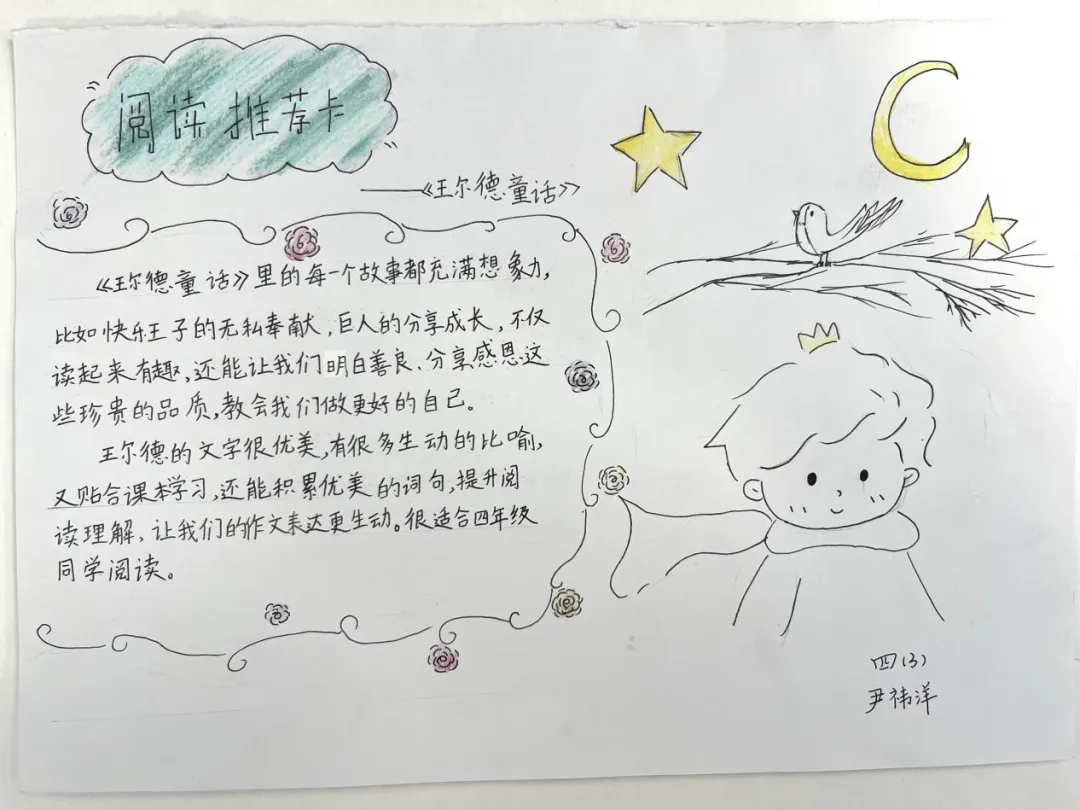 阅读推荐卡
——《王尔德童话》
《王尔德童话》里的每一个故事都充满想象力,
比如快乐王子的无私奉献,巨人的分享成长,不仅
读起来有趣,还能让我们明白善良、分享感恩这
些珍贵的品质,教会我们做更好的自己。
王尔德的文字很优美,有很多生动的比喻,
又贴合课本学习,还能积累优美的词句,提升阅
读理解,让我们的作文表达更生动。很适合四年级
同学阅读。
四(3)
尹祎洋